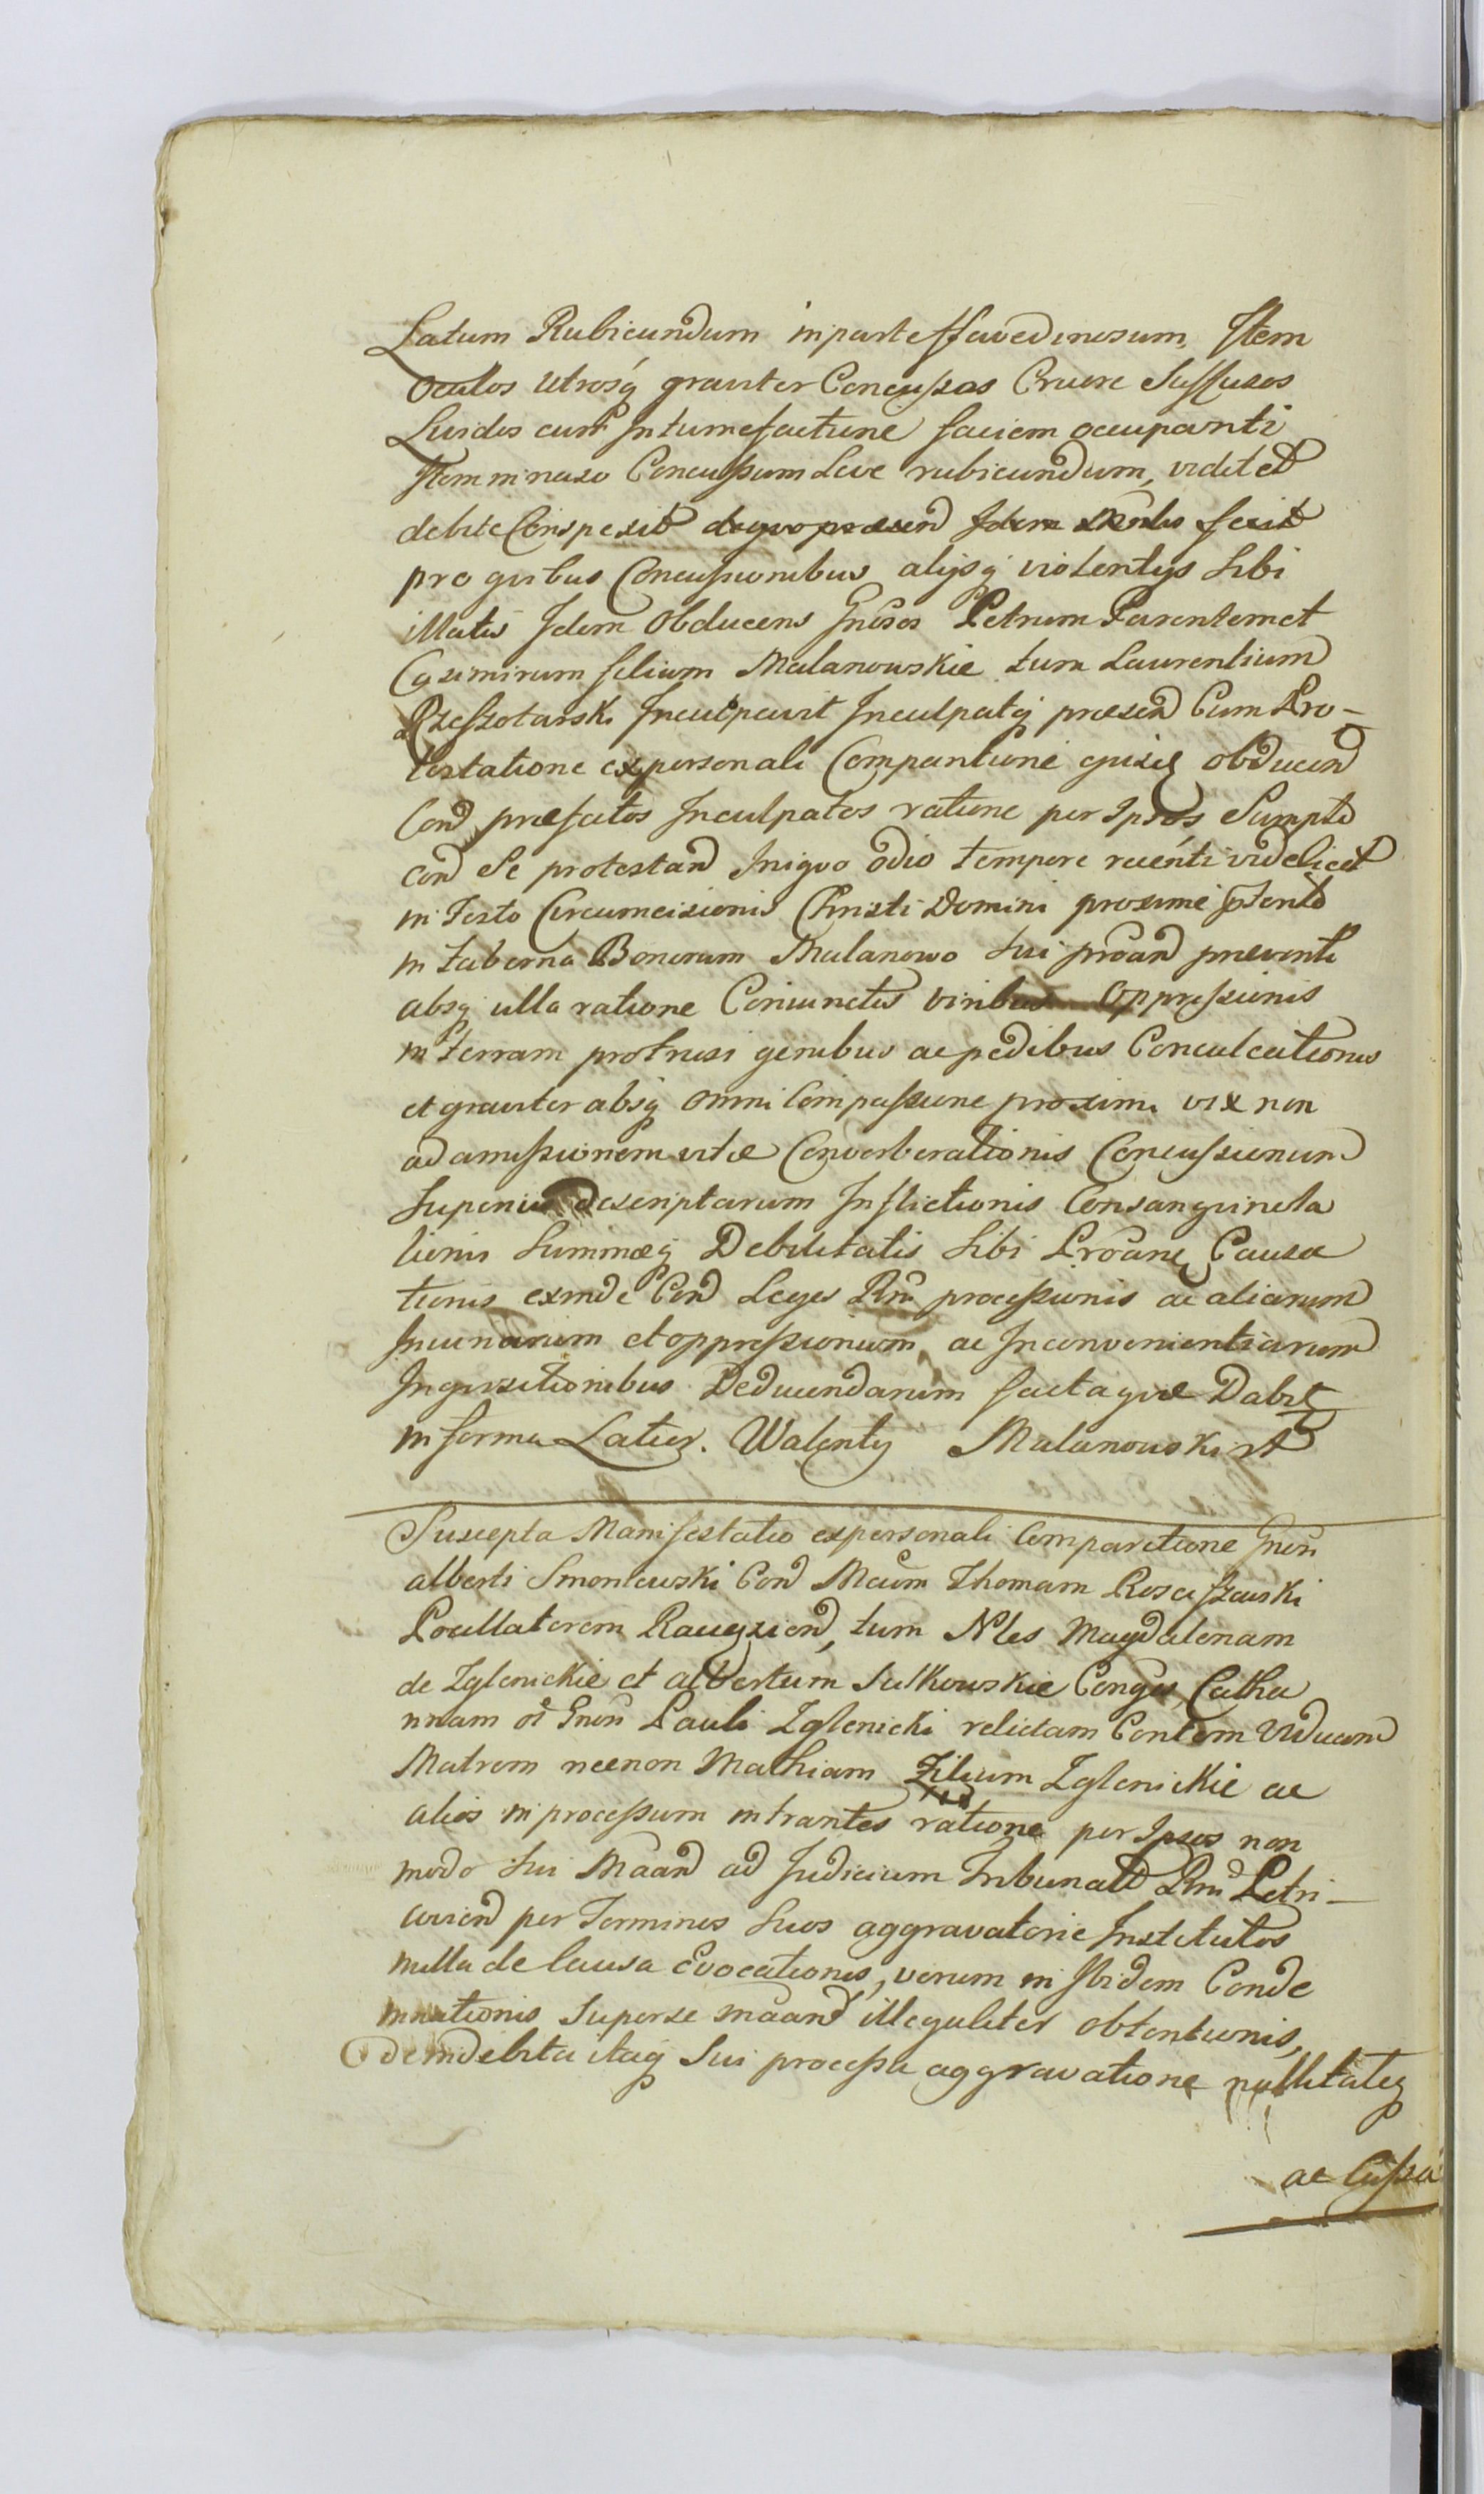 Latum Rubicundum in parte flavedinosum, Item
Oculos Utrosq graviter Concussos Cruore Suffusos
Lividos cum Intumefactione faciem occupanti
Item in naso Concussum Leve rubicundum, vidit et
debite Conspexit de quo praesen Idem Mnlis fecit
pro quibus Concussionibus alysq violentys Sibi
illatis Idem Obducens Gnosos Petrum Parentem et
Casimirum filium Malanowskie tum Laurentium
Rzeszotarski Inculpavit Inculpatq praesen Cum Pro-
testatione ex personali Comparitione ejusq obducen
Con praefatos Inculpatos ratione per Ipsos Sumpto
con Se protestan Iniquo odio tempore recenti videlicet
in Festo Circumcisionis Christi Domini proxime pterito
in taberna Bonorum Malanowo Sui proan praeventi
absq ulla ratione Coniunctis viribus Oppressionis
in terram protrusi genibus ac pedibus Conculcationis
et graviter absq omni Compassione proximi vix non
ad amissionem vitae Converberationis Concussionum
Superius descriptarum Inflictionis Consanguinola
tionis Summaeq Debilitatis Sibi Proane Causa
tionis exinde Con Leges Rni processionis ac aliarum
Iniuriarum et oppressionum ac Inconvenientiarum
Inquisitionibus Deducendarum facta quae Dabit
in forma Latior. Walenty Malanowski

Suscepta Manifestatio ex personali Comparitione Gnosi
alberti Smoniewski Con Mcum Thomam Rosciszewski
Pocillatorem Raciazien, tum Nles Magdalenam
de Zglenickie et albertum Sulkowskie Conges, Catha
rinam oi Gnosi Pauli Zglenicki relictam Contem Viduam
Matrem necnon Mathiam Filium Zglenickie ac
alios in processum intrantes ratione per Ipsos non
modo Sui Maan ad Iudicium Tribunal Rni Petri-
covien per Terminos Suos aggravatorie Institutos
nulla de Causa Evocationis, verum in Ibidem Conde
mnationis Super se maan illegaliter obtentionis,
de indebita itaq Sui processu aggravatione nullitateq
ac Cassa